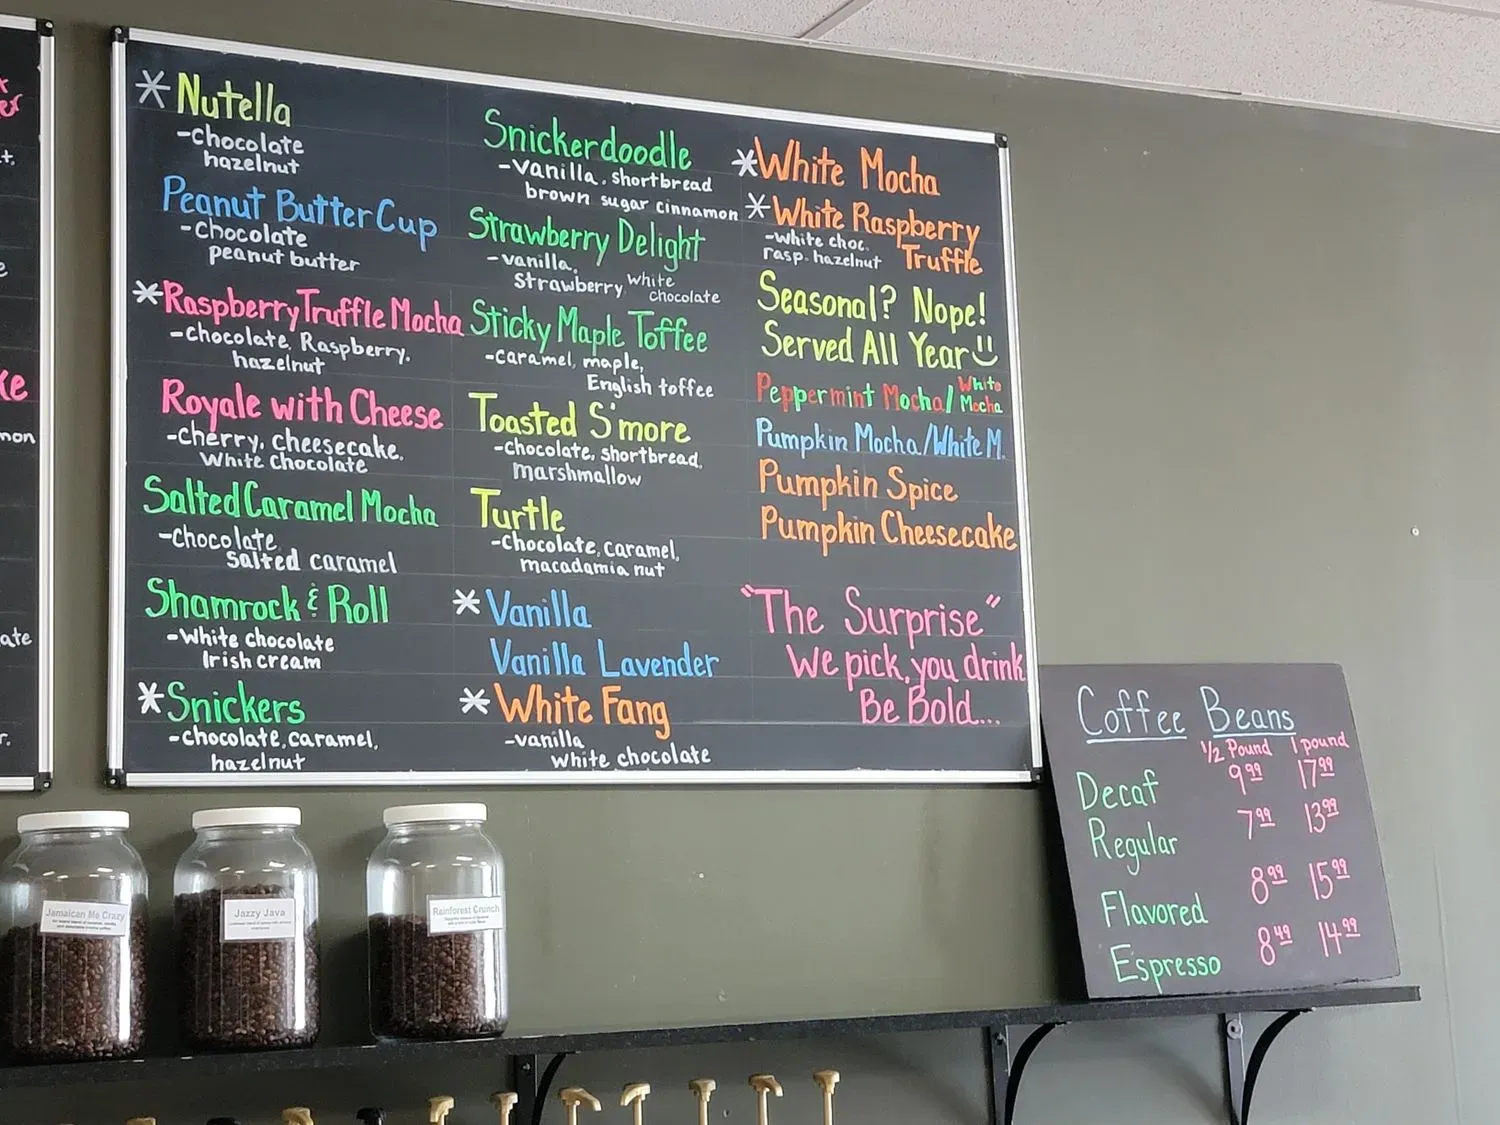 ke
non
ate
* Nutella
-chocolate
hazelnut
Peanut Butter Cup
-chocolate
peanut butter
* Raspberry Truffle Mocha
-chocolate, Raspberry,
hazelnut
Royale with Cheese
-cherry, cheesecake,
White Chocolate
Salted Caramel Mocha
-chocolate,
salted caramel
Shamrock & Roll
-White chocolate
Irish cream
* Snickers
-chocolate, caramel,
hazelnut
Snickerdoodle
-vanilla, shortbread
brown sugar cinnamon
Strawberry Delight
-vanilla,
Strawberry, white
chocolate
Sticky Maple Toffee
-caramel, maple,
English toffee
Toasted S'more
-chocolate, shortbread,
marshmallow
Turtle
-chocolate, caramel,
macadamia nut
* Vanilla
Vanilla Lavender
* White Fang
-vanilla
white chocolate
* White Mocha
* White Raspberry
Truffle
-white choc.
rasp. hazelnut
Seasonal? Nope!
Served All Year
Peppermint Mocha/ White
Mocha
Pumpkin Mocha/White M.
Pumpkin Spice
Pumpkin Cheesecake
"The Surprise"
We pick, you drink
Be Bold...
Coffee Beans
1/2 Pound 1 pound
Decaf 9.99 17.99
Regular 7.99 13.99
Flavored 8.99 15.99
Espresso 8.49 14.99
Jamaican Me Crazy
Jazzy Java
Rainforest Crunch